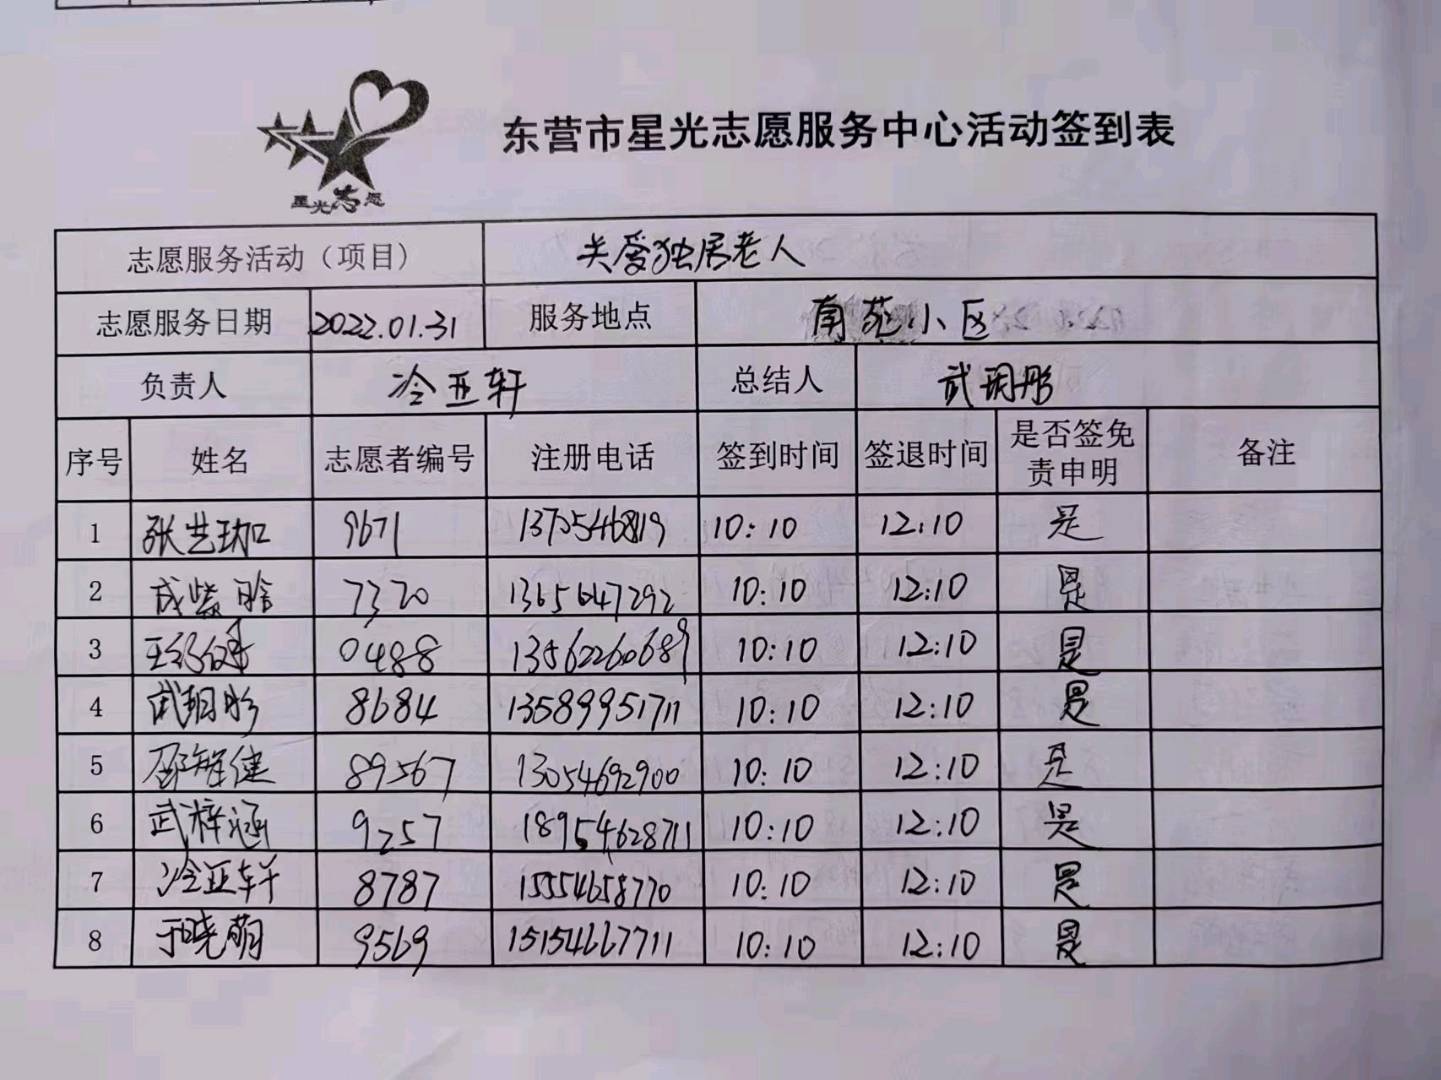 星光志愿
东营市星光志愿服务中心活动签到表
志愿服务活动（项目） 关爱独居老人
志愿服务日期 2022.01.31 服务地点 南苑小区
负责人 冷亚轩 总结人 武玥彤
序号 姓名 志愿者编号 注册电话 签到时间 签退时间 是否签免责申明 备注
1 张艺珈 9671 10:10 12:10 是
2 成紫晗 7320 1365647292 10:10 12:10 是
3 0488 13562260689 10:10 12:10 是
4 武玥彤 8684 13589951711 10:10 12:10 是
5 邵智健 89567 13054692900 10:10 12:10 是
6 武梓涵 9257 18954628711 10:10 12:10 是
7 冷亚轩 8787 15554658770 10:10 12:10 是
8 于晓萌 9569 15154667711 10:10 12:10 是